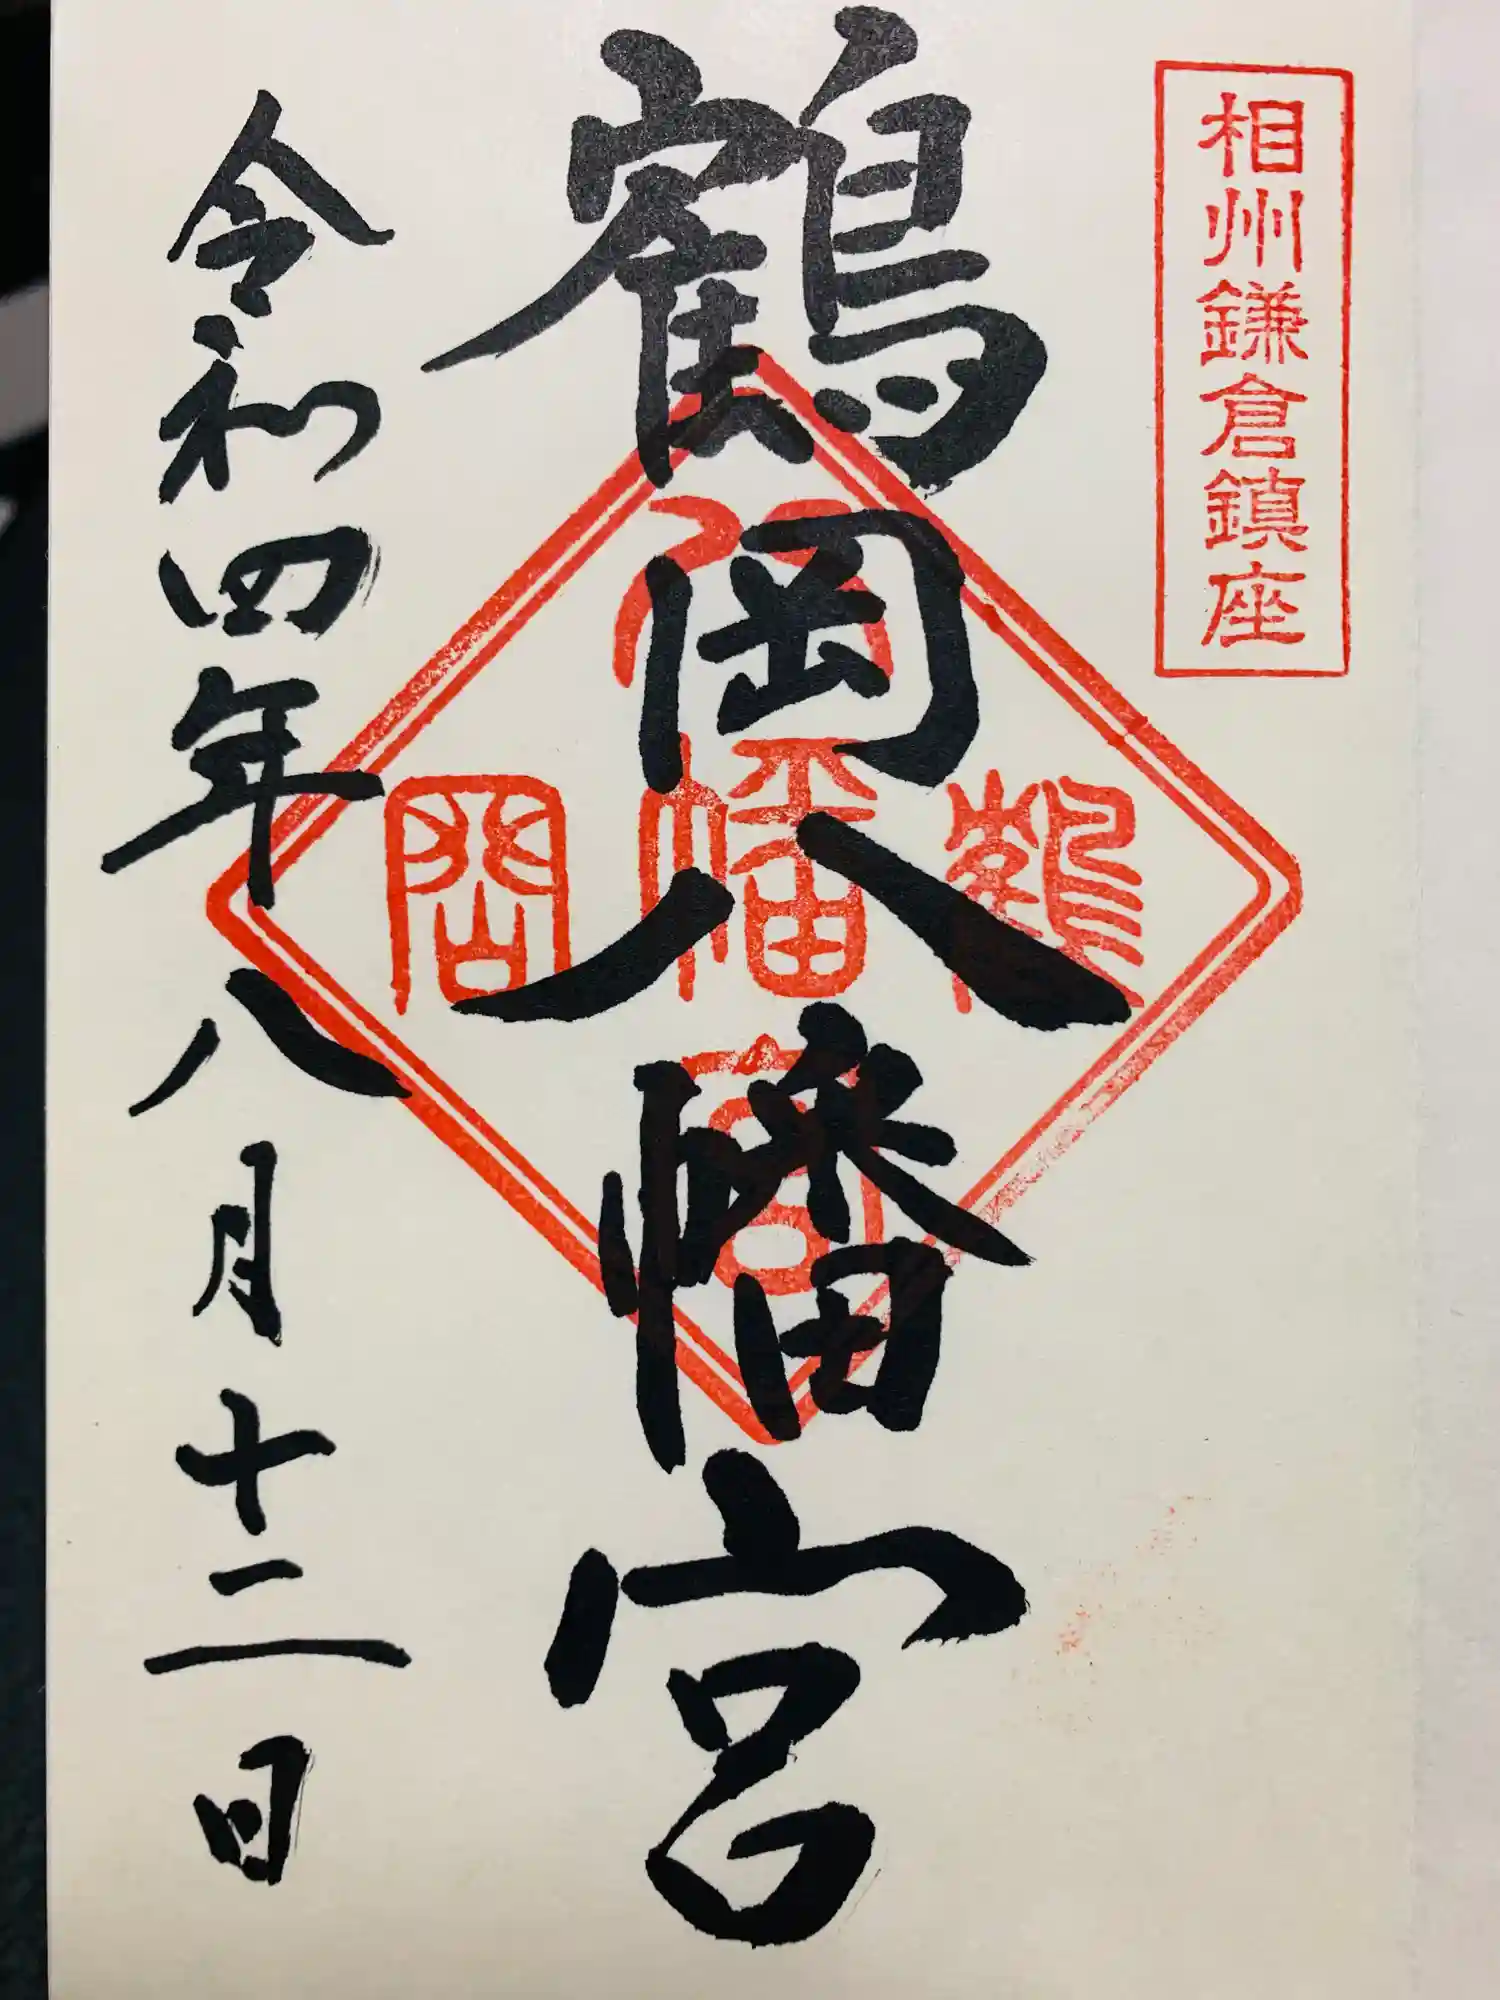 相州鎌倉鎮座
鶴岡八幡宮
鶴
八
幡
宮
岡
令和四年八月十二日